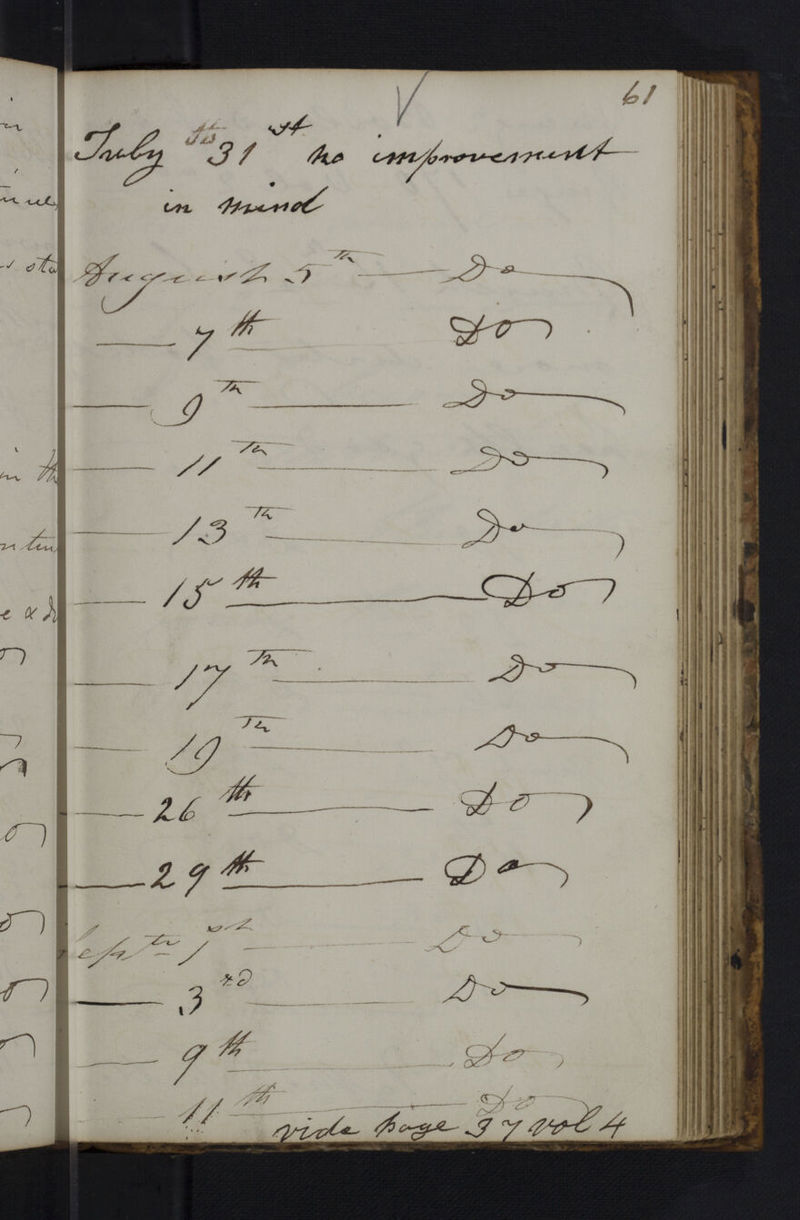 61
July 31st no improvement
in mind
August 5th — Do
— 7th — Do
— 9th — Do
— 11th — Do
— 13th — Do
— 15th — Do
— 17th — Do
— 19th — Do
— 26th — Do
— 29th — Do
Septr 1st — Do
— 3rd — Do
— 9th — Do
— 11th — Do
vide page 37 vol 4